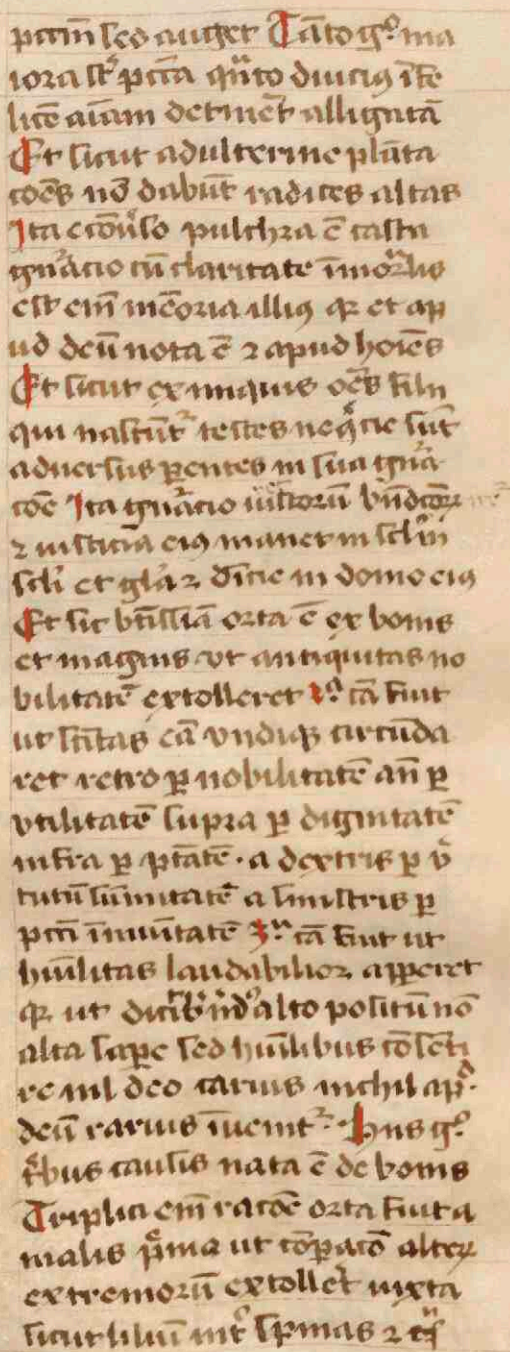 pctm̄ sed auget Tāto gͦ ma
iora st̄ pctā qⁿto diucius īfe
licē aīam detinet alligatā
Et sicut adulterine plāta
cōes nō dabūt radices altas
Ita econůso pulchra ē casta
gnᵃcio cū claritate īmorͣlis
est em̄ mēoria illiꝰ qꝛ et ap
ud deū nota ē ⁊ apud hoīes
Et sicut ex iniquis oēs filii
qui nascūtʳ testes neqͥcie sūt
aduersus ꝑentes in sua gnᵃ
cōe Ita gnᵃcio iustorū bn̄dcōꝝ
⁊ iusticia eiꝰ manet in scl̄m
scl̄i et glᵃ ⁊ diͥcie in domo eiꝰ
Et sic bt̄issīa orta ē ex bonis
et magnis vt antiquitas no
bilitatē extolleret 2ͦ cā fuit
ut scītas eā vndiqꝫ circūda
ret retro ꝑ nobilitatē an̄ ꝑ
vtilitatē supra ꝑ dignitatē
infra ꝑ ptātē · a dextris ꝑ vͥ
tutū sūmitatē a sinistris ꝑ
pctī īmunitatē 3ᵃ cā fuit ut
hūilitas laudabilior apꝑeret
qꝛ ut dicit alto positū nō
alta sapꝑe sed hūilibus cōsenti
re nil deo carius nichil apᵈ
deū rarius īuenitʳ · Hiis gͦ
tͥbus causis nata ē de bonis
Triplici em̄ racōe orta fuit a
malis pͥma ut cōꝑacō alteꝝ
extremorū extolleret̄ iuxta
sicut liliū intͦ spinas ⁊ cͣ